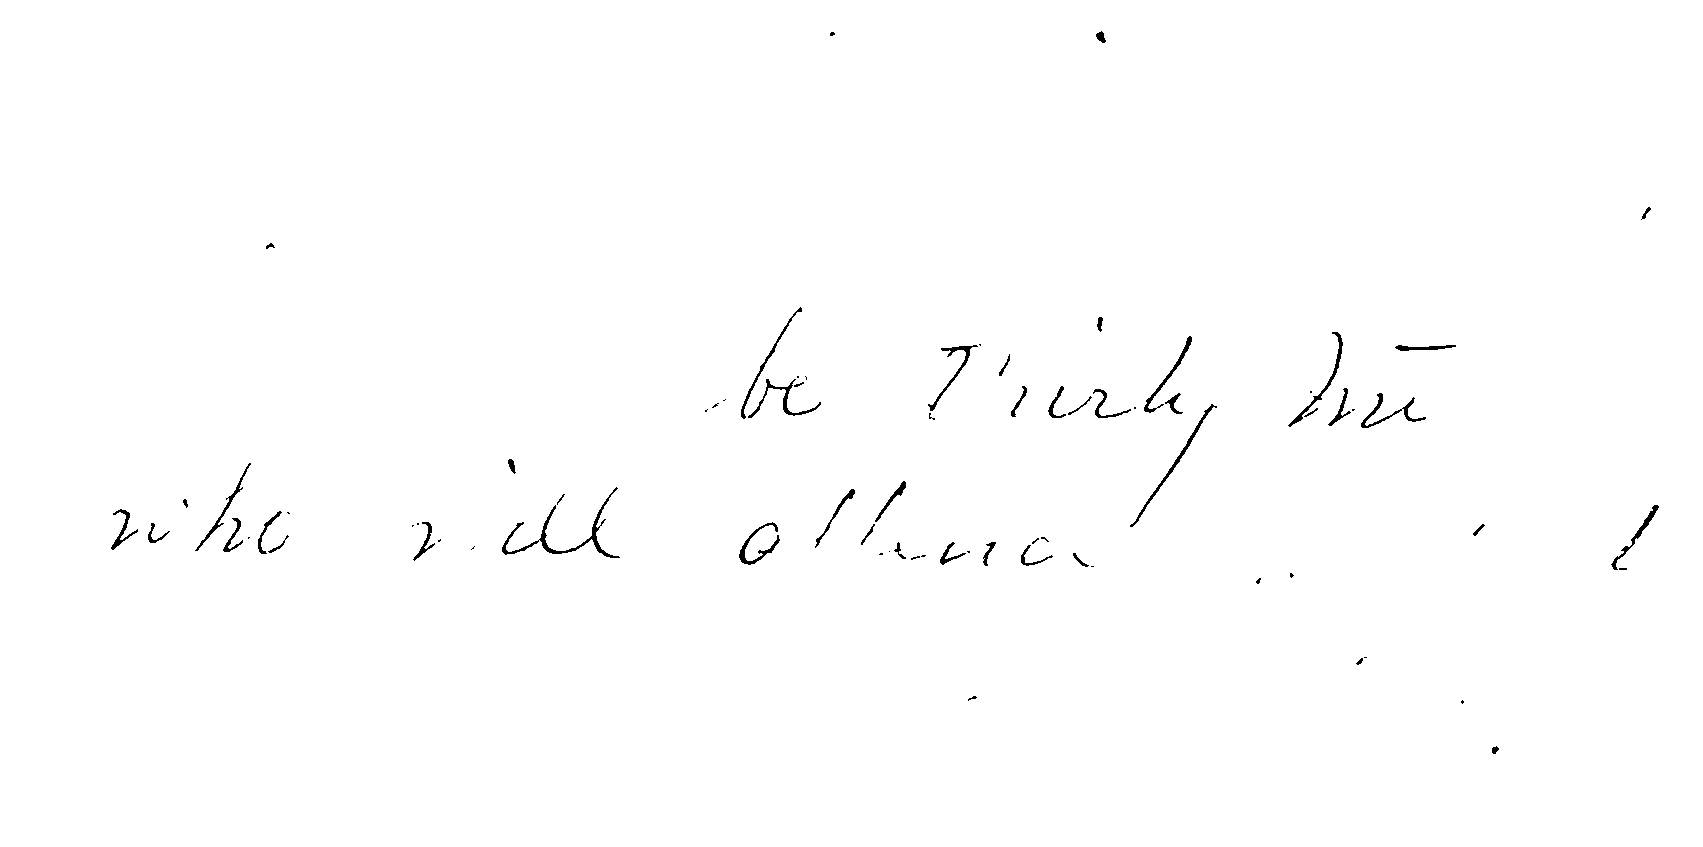 be Thirty
who will attend